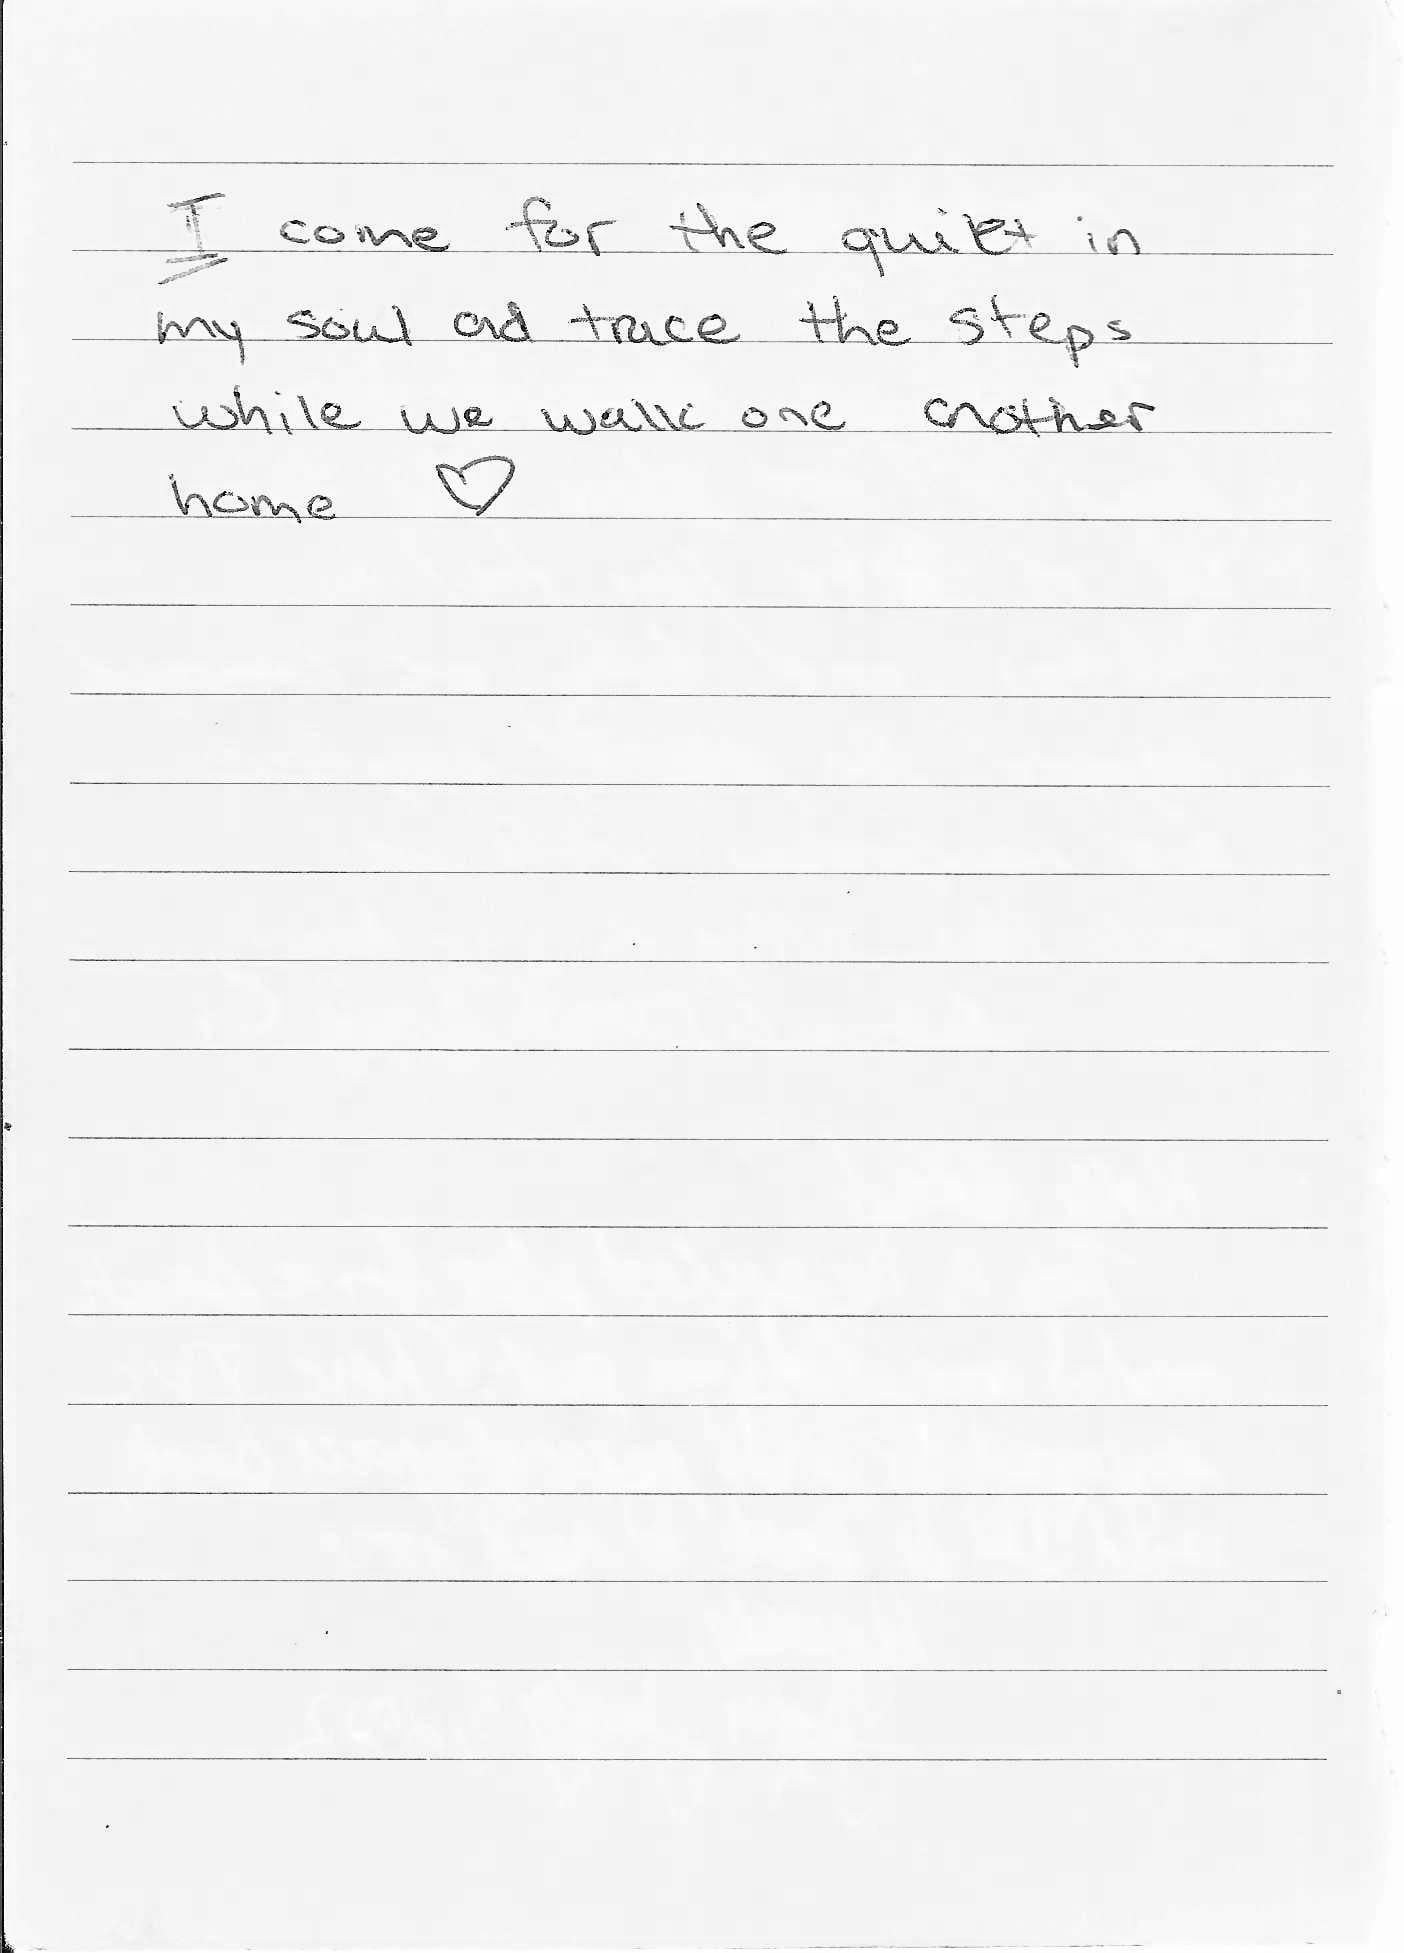 I come for the quiet in
my soul ad trace the steps
while we walk one another
home ♡